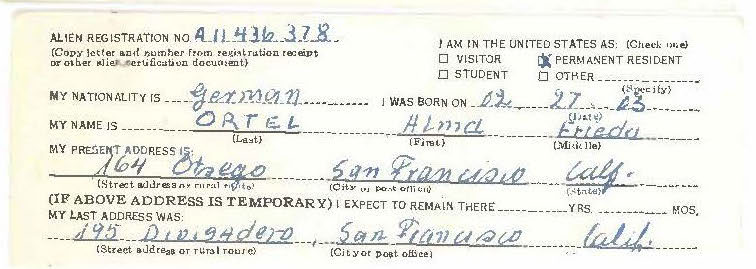 ALIEN REGISTRATION NO. A 11 436 378
(Copy letter and number from registration receipt
or other alien certification document)
I AM IN THE UNITED STATES AS: (Check one)
☐ VISITOR ☒ PERMANENT RESIDENT
☐ STUDENT ☐ OTHER
(Specify)
MY NATIONALITY IS German I WAS BORN ON 02 27 03
(Date)
MY NAME IS ORTEL Alma Frieda
(Last) (First) (Middle)
MY PRESENT ADDRESS IS:
164 Otsego San Francisco Calf.
(Street address or rural route) (City or post office) (State)
(IF ABOVE ADDRESS IS TEMPORARY) I EXPECT TO REMAIN THERE YRS. MOS.
MY LAST ADDRESS WAS:
195 Divigadero, San Francisco Calif.
(Street address or rural route) (City or post office)